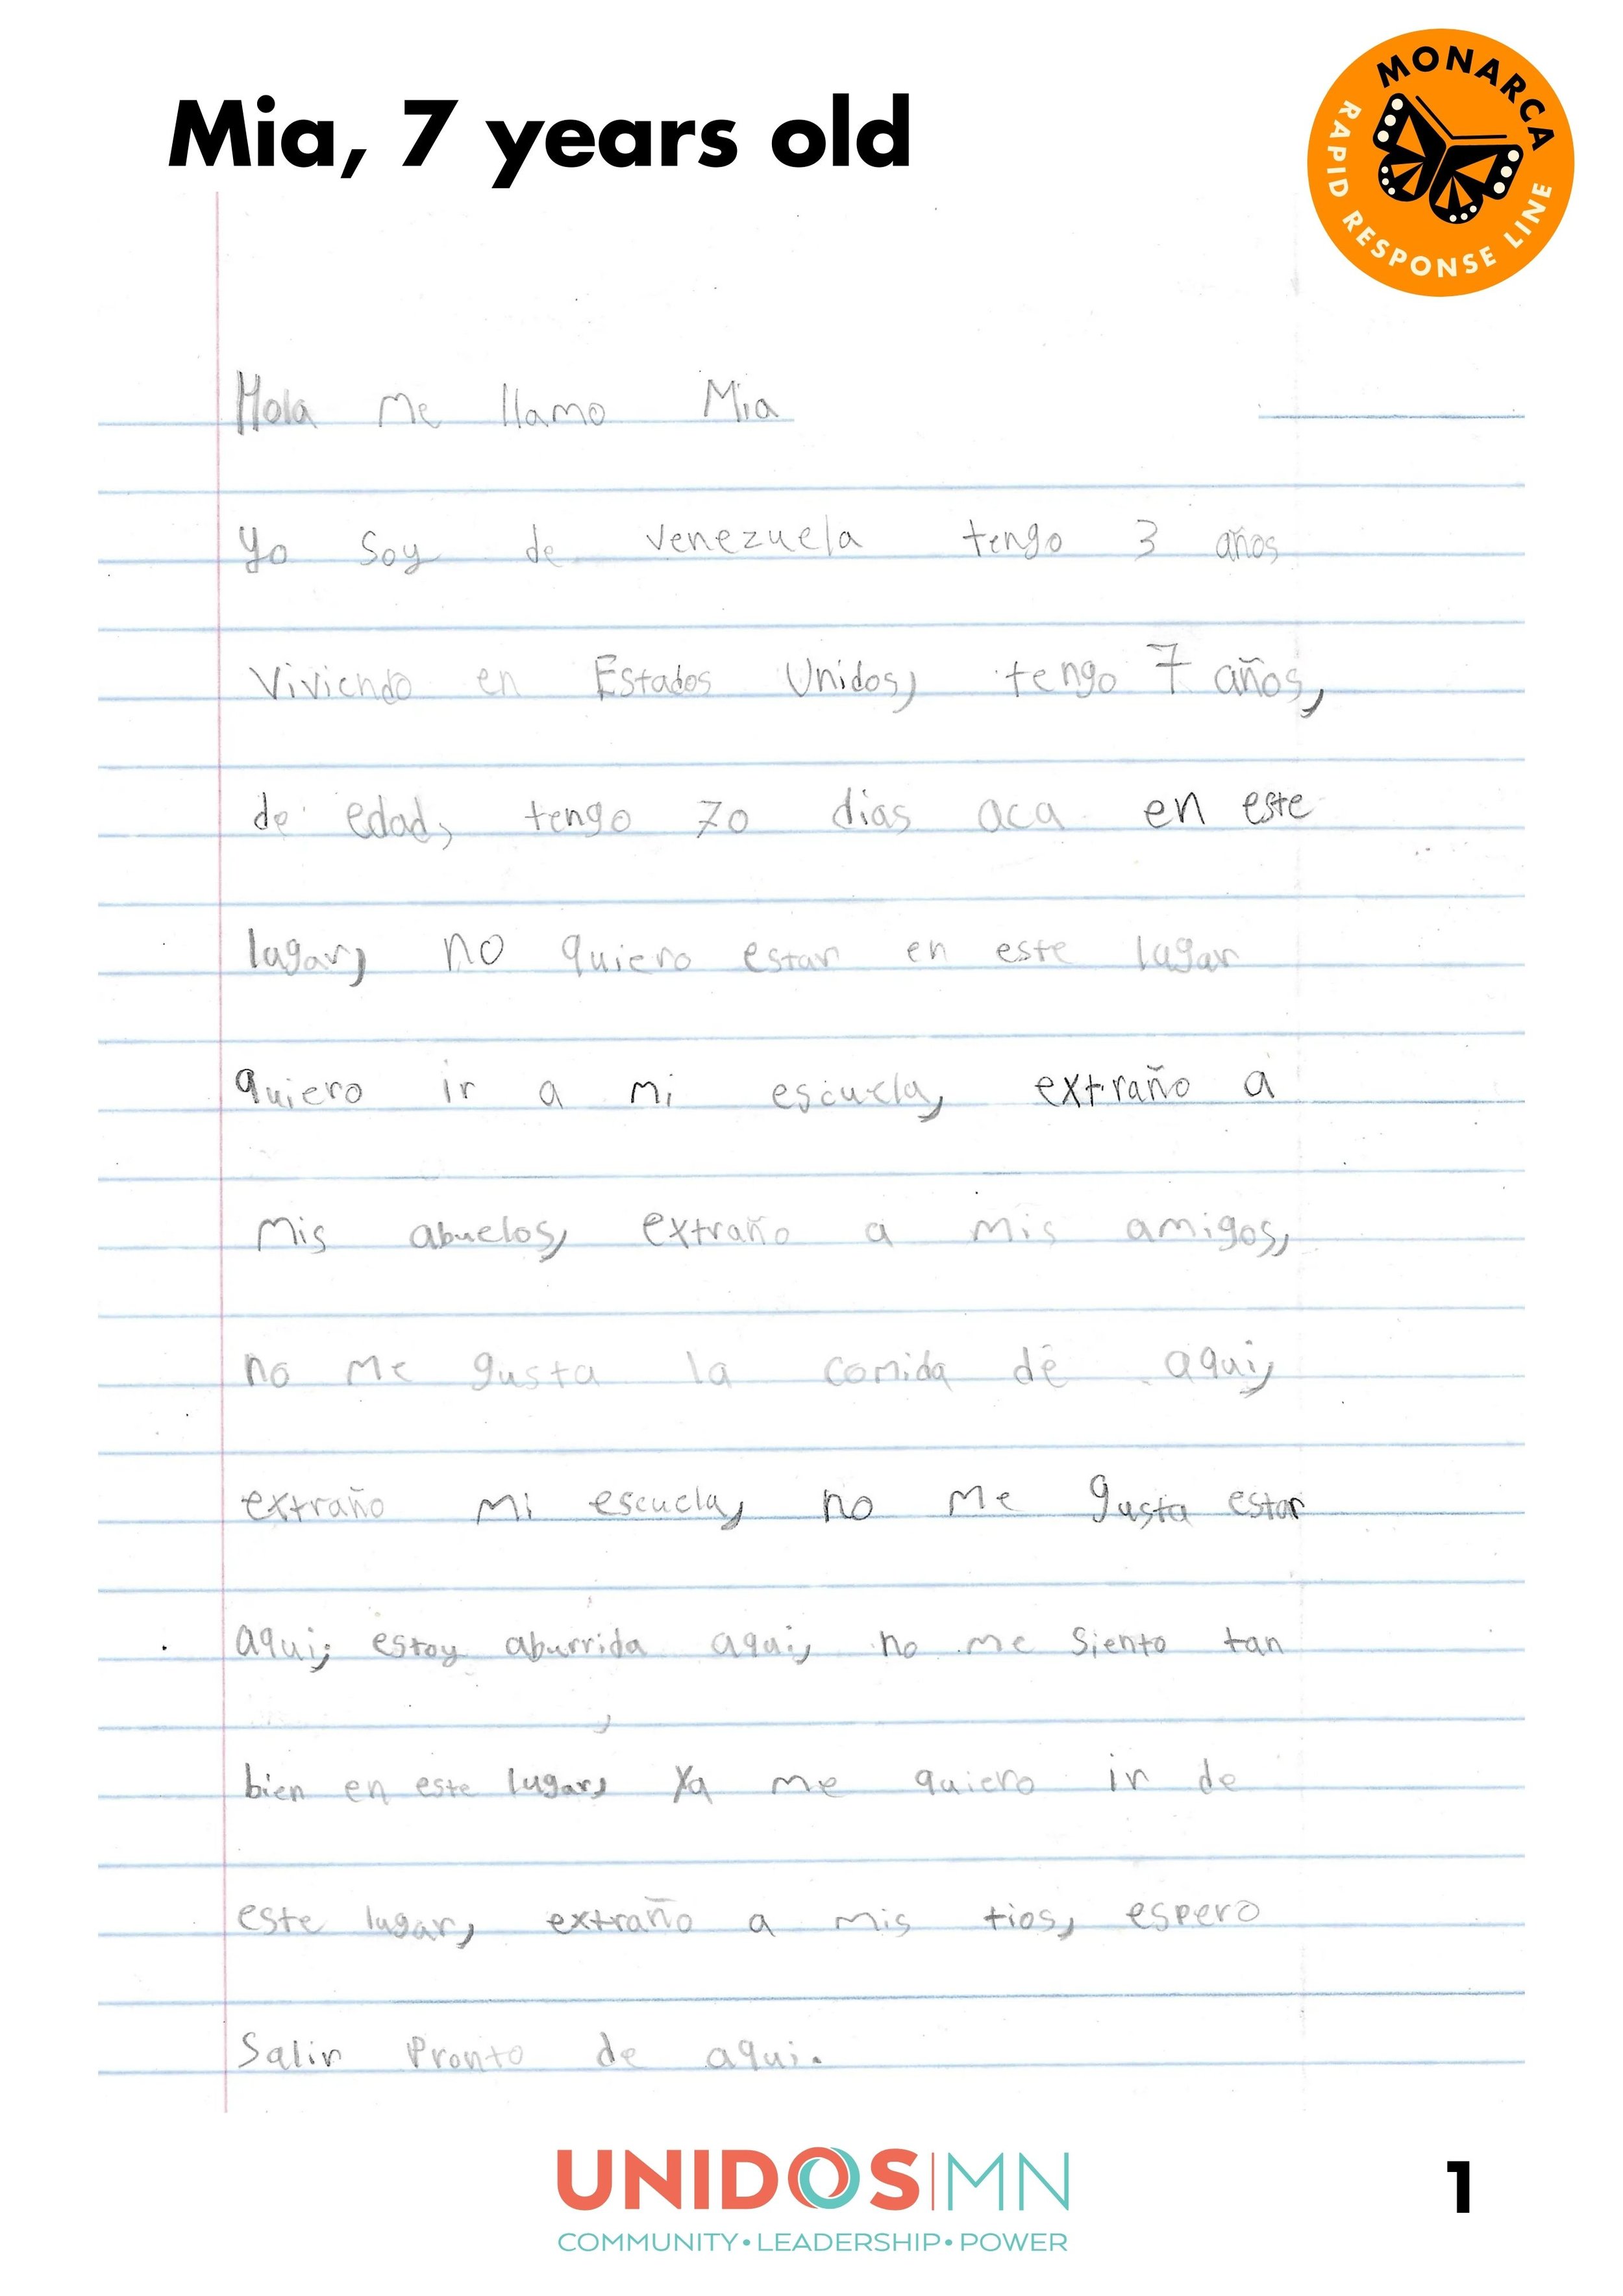 Mia, 7 years old
MONARCA
RAPID RESPONSE LINE
Hola me llamo Mia
Yo soy de venezuela tengo 3 años
viviendo en Estados Unidos, tengo 7 años,
de edad, tengo 70 dias aca en este
lugar, no quiero estar en este lugar
quiero ir a mi escuela, extraño a
mis abuelos, extraño a mis amigos,
no me gusta la comida de aqui,
extraño mi escuela, no me gusta estar
aqui, estoy aburrida aqui, no me siento tan
bien en este lugar, Ya me quiero ir de
este lugar, extraño a mis tios, espero
Salir Pronto de aqui.
UNIDOS|MN
COMMUNITY•LEADERSHIP•POWER
1